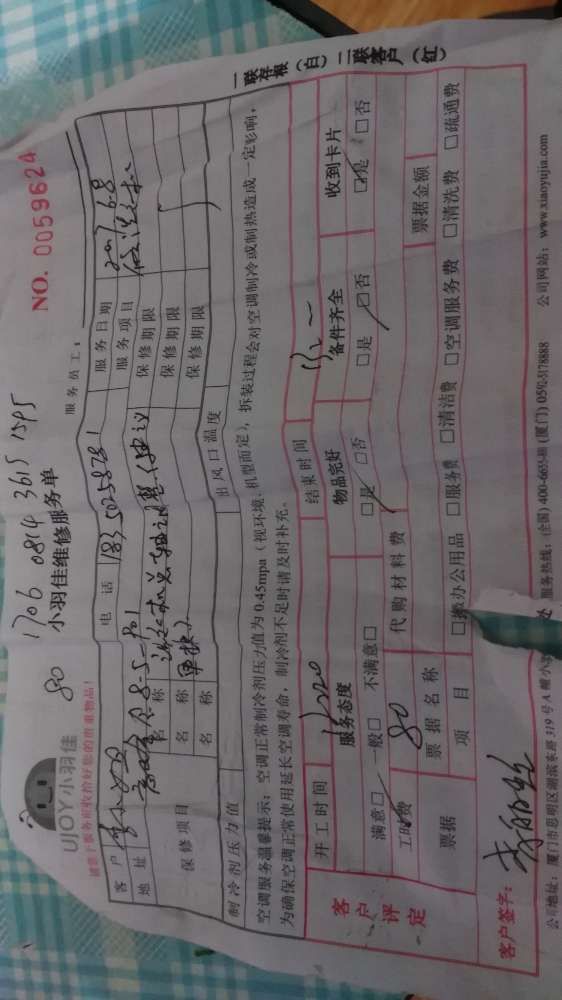 1706 0814 3615 1395
80
UJOY小羽佳
小羽佳维修服务单
NO. 0059624
请您于服务前收拾好您的贵重物品!
服务员工:
一联存根(白)二联客户(红)
客户
电话
18350258781
服务日期
2017.6.8
地址
服务项目
保修项目
名称
保修期限
名称
保修期限
名称
保修期限
制冷剂压力值
出风口温度
空调服务温馨提示:空调正常制冷剂压力值为0.45mpa(视环境、机型而定),拆装过程会对空调制冷或制热造成一定影响,
为确保空调正常使用延长空调寿命,制冷剂不足时请及时补充。
客户评定
开工时间
结束时间
服务态度
物品完好
备件齐全
收到卡片
满意□ 一般□ 不满意□
□是 □否
□是 □否
□是 □否
工时费
80
代购材料费
票据
票据名称
票据金额
项目
□搬办公用品 □服务费 □清洁费 □空调服务费 □清洗费 □疏通费
客户签字:
公司地址:厦门市思明区湖滨东路319号A幢小羽
处 服务热线:(全国)400-6655-88 (厦门)0592-5178888 公司网站:www.xiaoyujia.com